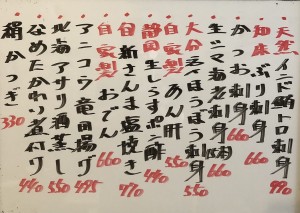 天然 インド鮪トロ刺身 990
知床 ぶり刺身 660
かつお刺身 660
生シマ海老刺身 660
大分 天然ほうぼう刺身 550
自家製 あん肝 550
静岡 生しらすポン酢 440
旬 新さんま塩焼き 470
自家製 おでん 660
アンコウ竜田揚げ 495
地海アサリ酒蒸し 550
なめたかれい煮付け 440
絹かつぎ 330